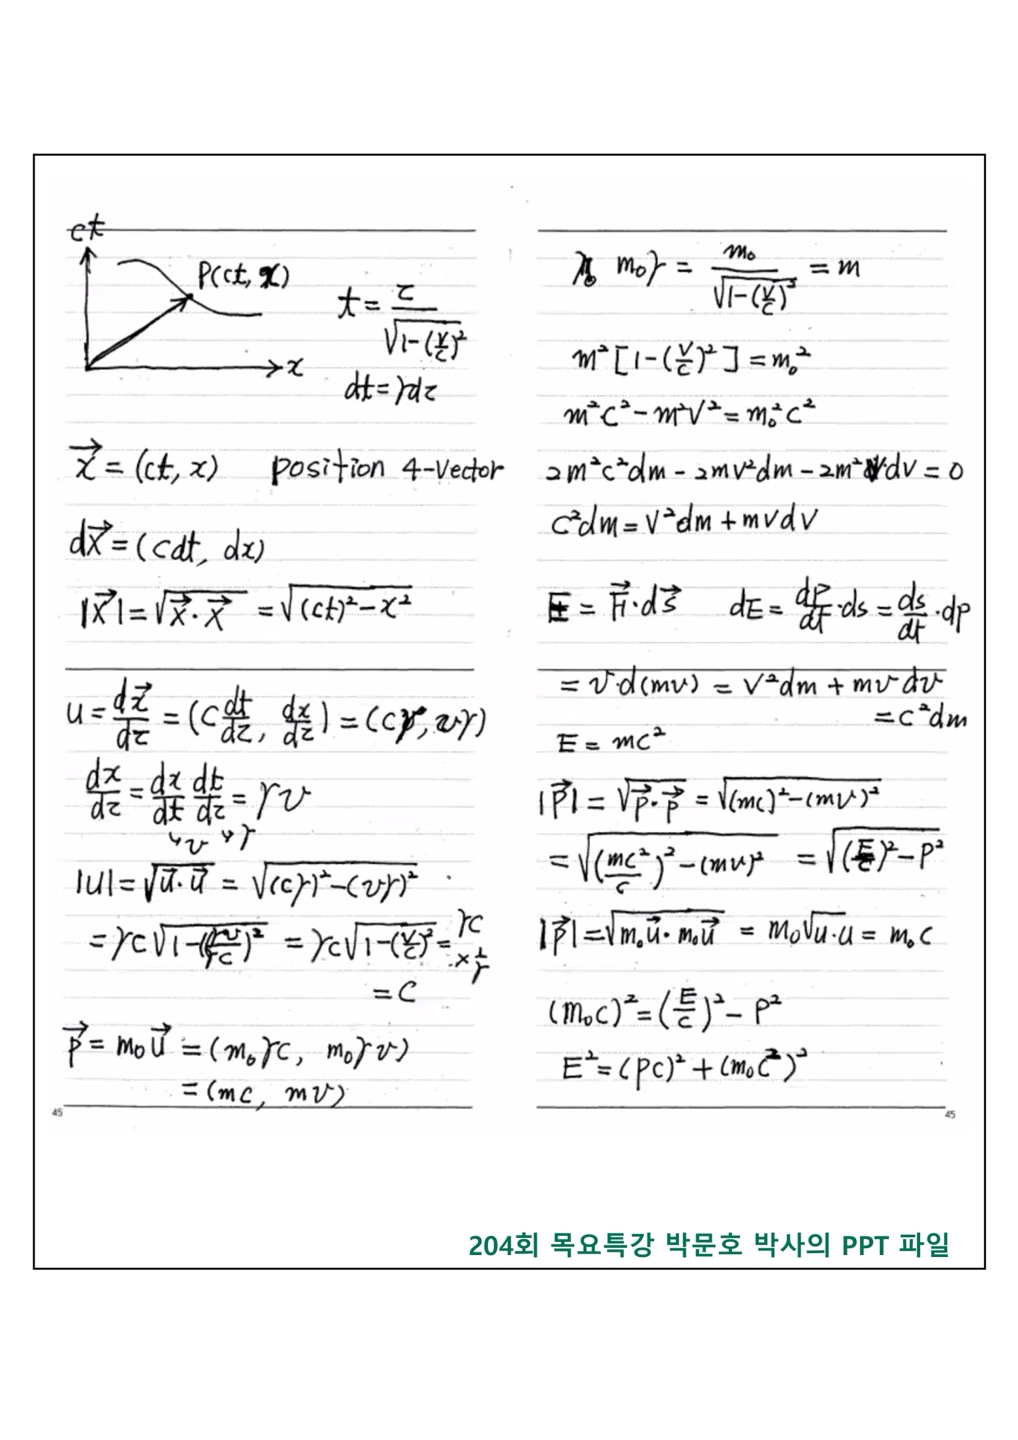 ct
P(ct, x)
t = τ / √(1-(v/c)²)
x
dt = γdτ
x⃗ = (ct, x) position 4-vector
dx⃗ = (cdt, dx)
|x⃗| = √(x⃗·x⃗) = √((ct)²-x²)
u = dx⃗/dτ = (c dt/dτ, dx/dτ) = (cγ, vγ)
dx/dτ = dx/dt dt/dτ = γv
↳v ↳γ
|u| = √(u⃗·u⃗) = √((cγ)²-(vγ)²)
= γc√(1-(γv/γc)²) = γc√(1-(v/c)²) = γc × 1/γ
= c
p⃗ = m₀u⃗ = (m₀γc, m₀γv)
= (mc, mv)
45
m₀γ = m₀ / √(1-(v/c)²) = m
m²[1-(v/c)²] = m₀²
m²c²-m²v² = m₀²c²
2m²c²dm - 2mv²dm - 2m²vdv = 0
c²dm = v²dm + mvdv
E = F⃗·ds⃗ dE = dp/dt·ds = ds/dt·dp
= v·d(mv) = v²dm + mvdv
= c²dm
E = mc²
|p⃗| = √(p⃗·p⃗) = √((mc)²-(mv)²)
= √((mc²/c)²-(mv)²) = √((E/c)²-p²)
|p⃗| = √(m₀u⃗·m₀u⃗) = m₀√(u·u) = m₀c
(m₀c)² = (E/c)² - p²
E² = (pc)² + (m₀c²)²
45
204회 목요특강 박문호 박사의 PPT 파일